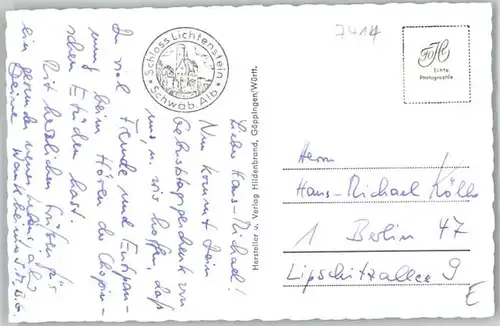 7414
Schloss Lichtenstein
Schwab. Alb
Echte
Photographie
Hersteller u. Verlag Hildenbrand, Göppingen/Württ.
Lieber Hans-Michael!
Nun kommt Dein
Geburtstagsgeschenk von
uns, u. wir hoffen, daß
Du viel Freude und Entspan-
nung beim Hören der Chopin-
schen Etüden hast.
Mit herzlichen Grüßen für
ein gesundes neues Lebensjahr
Deine
Herrn
Hans-Michael
1 Berlin 47
Lipschitzallee 9
E